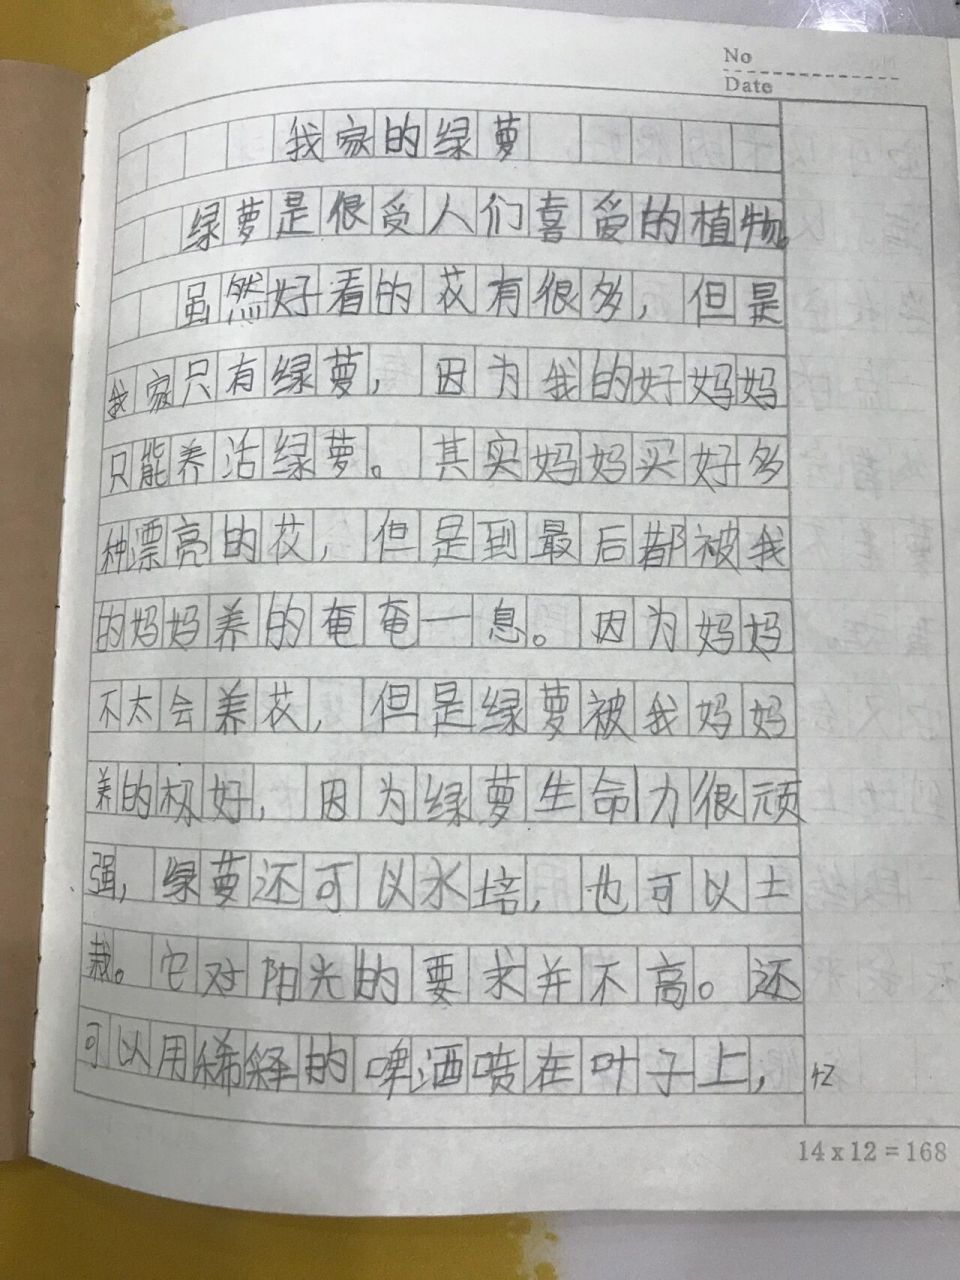 No
Date
我家的绿萝
绿萝是很受人们喜爱的植物。
虽然好看的花有很多，但是
我家只有绿萝，因为我的好妈妈
只能养活绿萝。其实妈妈买好多
种漂亮的花，但是到最后都被我
的妈妈养的奄奄一息。因为妈妈
不太会养花，但是绿萝被我妈妈
养的极好，因为绿萝生命力很顽
强，绿萝还可以水培，也可以土
栽。它对阳光的要求并不高。还
可以用稀释的啤酒喷在叶子上，
14x12=168